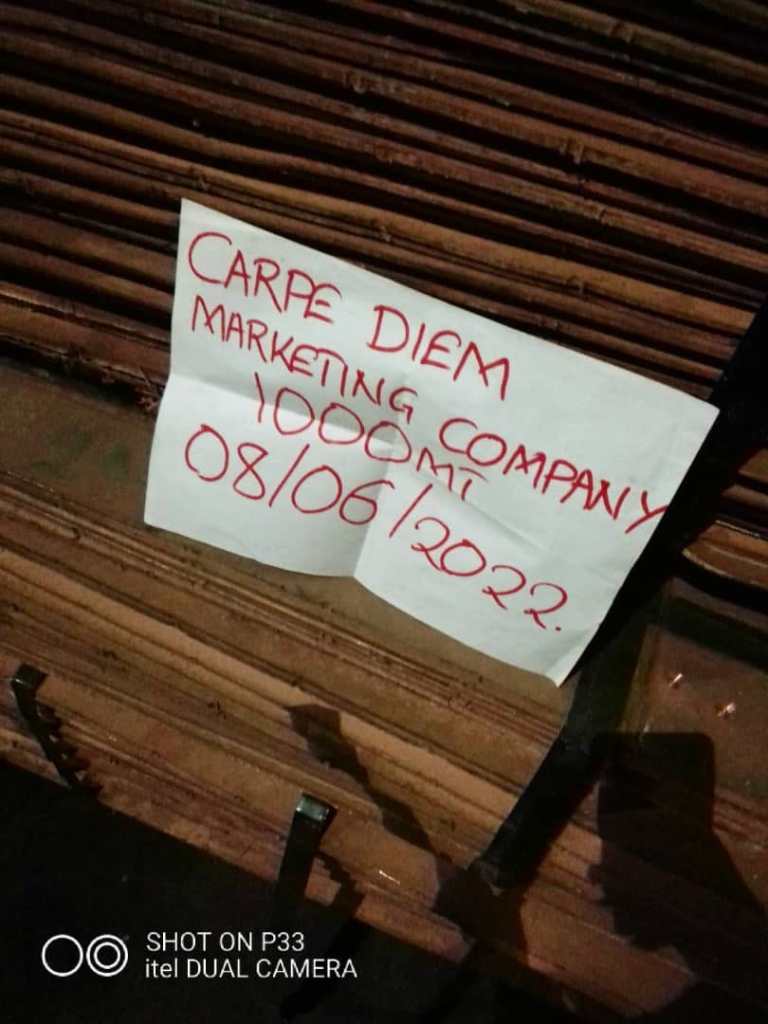 CARPE DIEM
MARKETING COMPANY
1000MT
08/06/2022.
SHOT ON P33
itel DUAL CAMERA